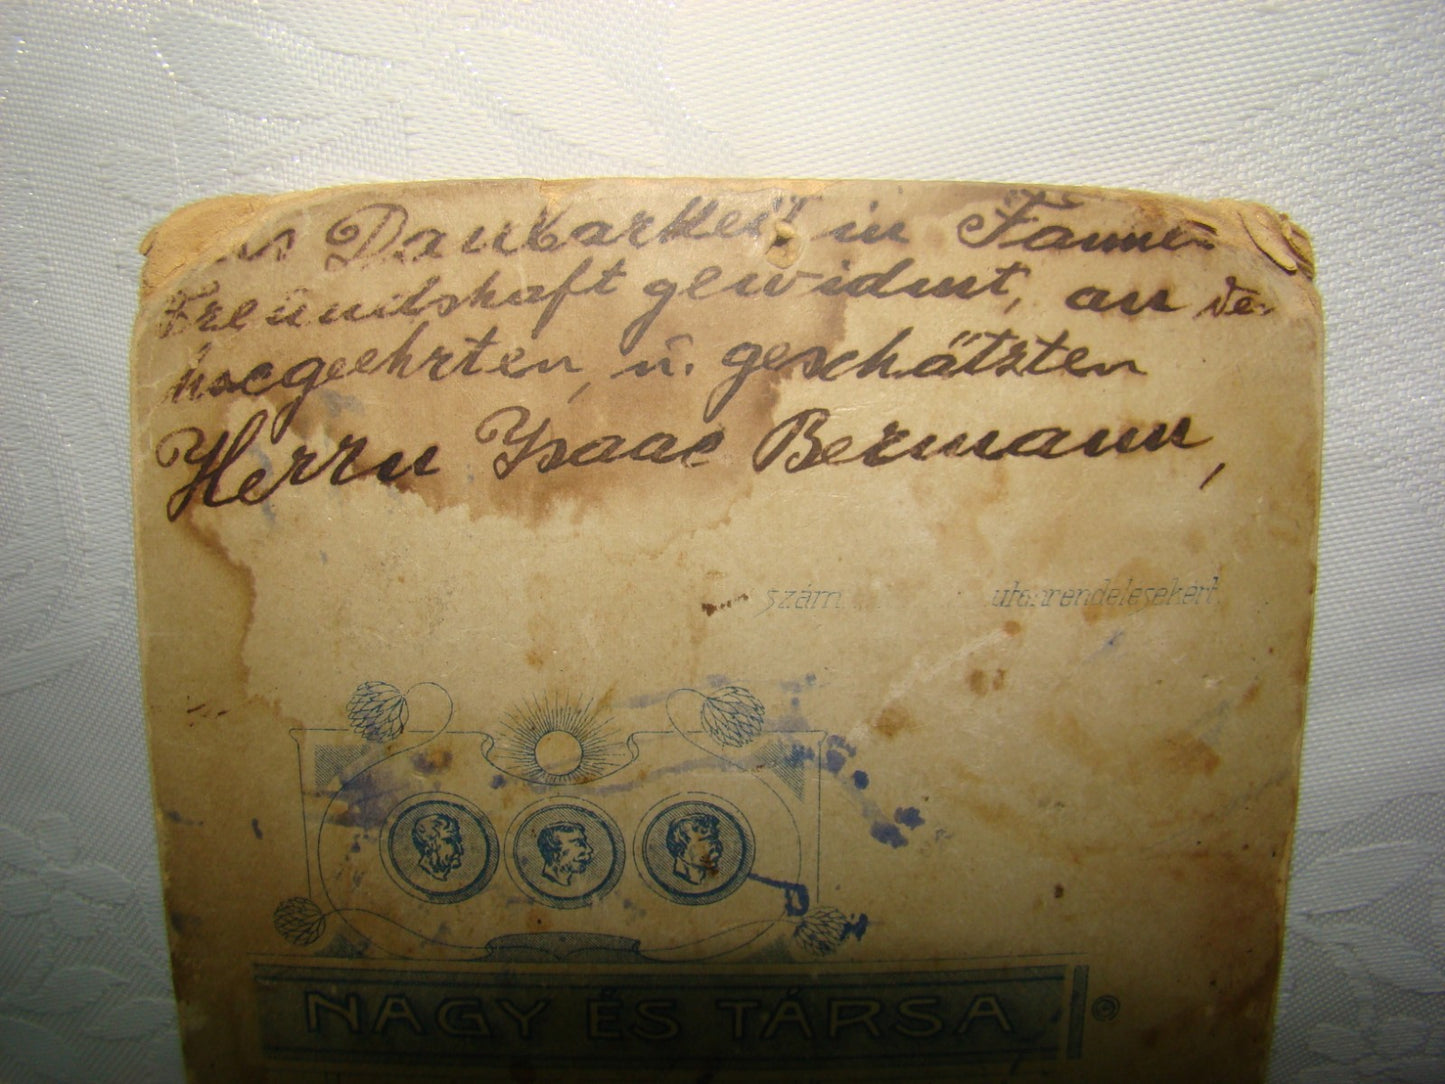 Dankbarkeit in
Freundshaft gewidmet, an
hocgeehrten, u. geschätzten
Herrn Ysaac Bermann,
szám utánrendelésekért
NAGY ÉS TÁRSA